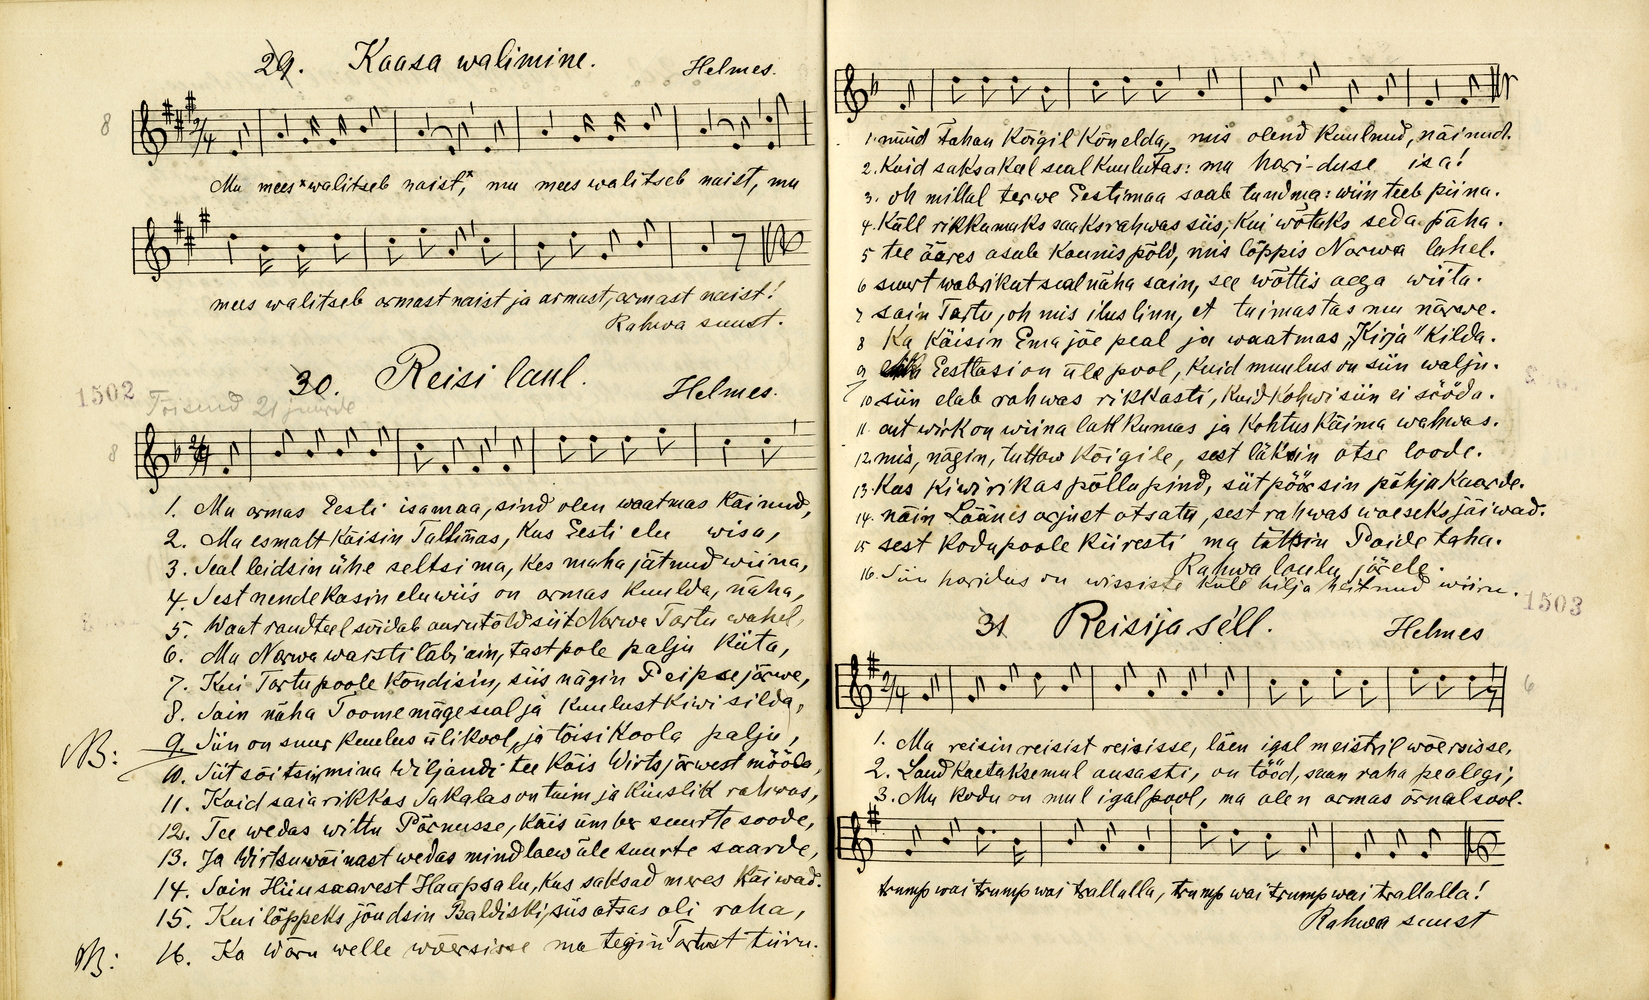 29. Kaasa walimine. Helmes.
8
Mu mees walitseb naist, mu mees walitseb naist, mu
mees walitseb armast naist ja armast, armast naist!
Rahwa suust.
1502
Tõisend 21 juurde
30. Reisi laul. Helmes.
8
1. Mu armas Eesti isamaa, sind olen waatmas käinud,
2. Ma esmalt käisin Tallinnas, kus Eesti elu wisa,
3. Seal leidsin ühe seltsi ma, kes maha jätnud wiina,
4. Sest nende kasin elu wiis on armas kuulda, näha,
5. Waat raudteel sõidab aurutõld siit Narwa Tartu wahel,
6. Ma Narwa warsti läbi ain, tast pole palju kiita,
7. Kui Tartu poole kondisin, siis nägin Peipse järwe,
8. Sain näha Toome mäge seal ja kuulust kiwi silda,
NB: 9. Siin on suur kuulus ülikool, ja tõisi koola palju,
10. Siit sõitsin mina Wiljandi tee käis Wirtsjärwest mööda,
11. Kuid saia rikkas Sakalas on taim ja kiuslik rahwas,
12. Tee wedas wittu Pärnusse, käis ümber suurte soode,
13. Ja Wirtsu wäinast wedas mind laew üle suurte saarde,
14. Sain Hiiusaarest Haapsalu, kus saksad meres käiwad.
15. Kui lõppeks jõudsin Baldiski, siis otsas oli raha,
NB: 16. Ka Wäru welle wõersisse ma tegin Tartust tiiru.
1. nüüd tahan kõigil kõnelda, mis olend kuulnud, näinud.
2. Kuid saksa kal seal kuulutas: ma hari-duse isa!
3. oh millal terwe Eestimaa saab tundma: wiin teeb piina.
4. Küll rikkamaks saaks rahwas siis, kui wõtaks seda päha.
5 tee ääres asub kaunis põld, mis lõppis Narwa lahel.
6 suurt wabrikut seal näha sain, see wõttis aega wiita.
7 sain Tartu, oh mis ilus linn, et taimastas mu närwe.
8 Ka käisin Ema jõe peal ja waatmas „Kirja" kilda.
9 Eestlasi on üle pool, kuid muulus on siin walju.
10 siin elab rahwas rikkasti, kuid kohwi siin ei sööda.
11. aut wirk on wiina lakkumas ja kohtus käima wahwas.
12. mis, nägin, tuttaw kõigile, sest läksin otse loode.
13. Kus kiwirikas põllupind, siit pöörsin põhja kaarde.
14. näin Läänes arjust otsatu, sest rahwas waeseks jäiwad.
15 sest kodupoole kiiresti ma tõttsin Paide taha.
Rahwa laulu järele.
16. Siin haridus on wissiste küll hilja heitnud wiiru.
1503
31 Reisija sell. Helmes
6
1. Ma reisin reisist reisisse, läen igal meistril wõersisse,
2. Laud kaetakse mul ausasti, on tööd, saan raha pealegi,
3. Mu kodu on mul igalpool, ma olen armas õrnal sool.
trump wai trump wai trallalla, trump wai trump wai trallalla!
Rahwa suust